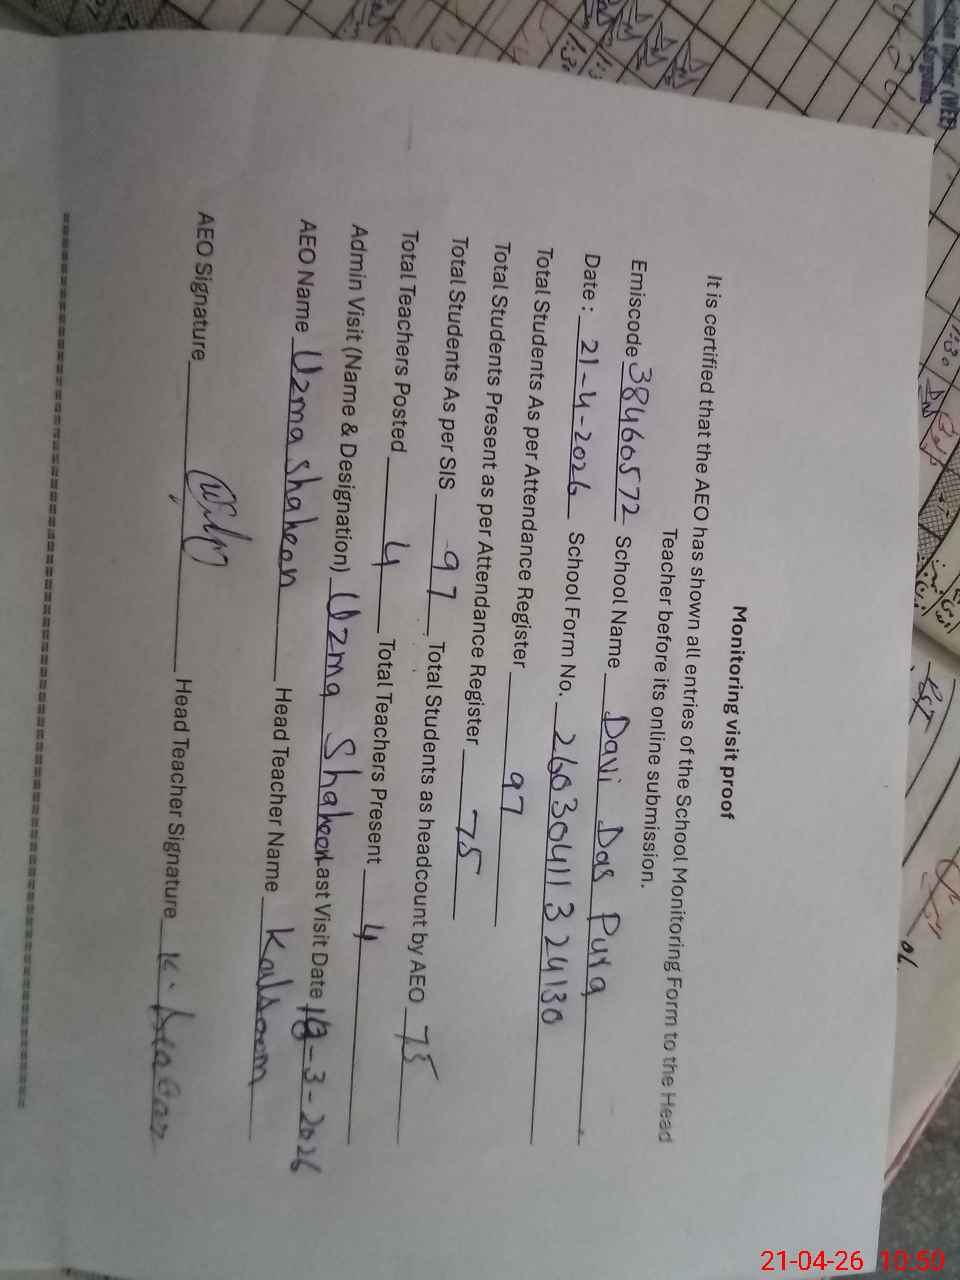 Monitoring visit proof
It is certified that the AEO has shown all entries of the School Monitoring Form to the Head
Teacher before its online submission.
Emiscode 38460572 School Name Davi Das Pura
Date : 21-4-2026 School Form No. 26030411324130
Total Students As per Attendance Register 97
Total Students Present as per Attendance Register 75
Total Students As per SIS 97 Total Students as headcount by AEO 75
Total Teachers Posted 4 Total Teachers Present 4
Admin Visit (Name & Designation) Uzma Shaheen Last Visit Date 18-3-2026
AEO Name Uzma Shaheen Head Teacher Name Kalsoom
AEO Signature Head Teacher Signature K.
21-04-26 10:50